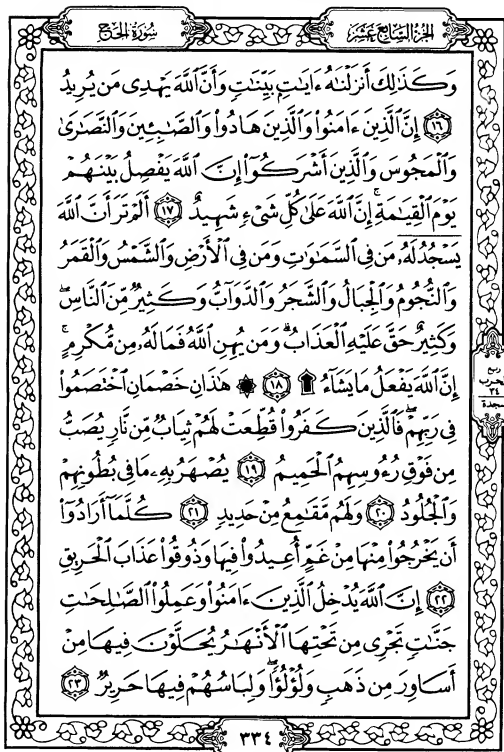 الجزء السابع عشر
سورة الحج
وَكَذَٰلِكَ أَنزَلْنَٰهُ ءَايَٰتٍۭ بَيِّنَٰتٍ وَأَنَّ ٱللَّهَ يَهْدِى مَن يُرِيدُ
١٦ إِنَّ ٱلَّذِينَ ءَامَنُوا۟ وَٱلَّذِينَ هَادُوا۟ وَٱلصَّٰبِـِٔينَ وَٱلنَّصَٰرَىٰ
وَٱلْمَجُوسَ وَٱلَّذِينَ أَشْرَكُوٓا۟ إِنَّ ٱللَّهَ يَفْصِلُ بَيْنَهُمْ
يَوْمَ ٱلْقِيَٰمَةِ ۚ إِنَّ ٱللَّهَ عَلَىٰ كُلِّ شَىْءٍ شَهِيدٌ ١٧ أَلَمْ تَرَ أَنَّ ٱللَّهَ
يَسْجُدُ لَهُۥ مَن فِى ٱلسَّمَٰوَٰتِ وَمَن فِى ٱلْأَرْضِ وَٱلشَّمْسُ وَٱلْقَمَرُ
وَٱلنُّجُومُ وَٱلْجِبَالُ وَٱلشَّجَرُ وَٱلدَّوَآبُّ وَكَثِيرٌ مِّنَ ٱلنَّاسِ ۖ
وَكَثِيرٌ حَقَّ عَلَيْهِ ٱلْعَذَابُ ۗ وَمَن يُهِنِ ٱللَّهُ فَمَا لَهُۥ مِن مُّكْرِمٍ ۚ
إِنَّ ٱللَّهَ يَفْعَلُ مَا يَشَآءُ ۩ ١٨ ۞ هَٰذَانِ خَصْمَانِ ٱخْتَصَمُوا۟
فِى رَبِّهِمْ ۖ فَٱلَّذِينَ كَفَرُوا۟ قُطِّعَتْ لَهُمْ ثِيَابٌ مِّن نَّارٍ يُصَبُّ
مِن فَوْقِ رُءُوسِهِمُ ٱلْحَمِيمُ ١٩ يُصْهَرُ بِهِۦ مَا فِى بُطُونِهِمْ
وَٱلْجُلُودُ ٢٠ وَلَهُم مَّقَٰمِعُ مِنْ حَدِيدٍ ٢١ كُلَّمَآ أَرَادُوٓا۟
أَن يَخْرُجُوا۟ مِنْهَا مِنْ غَمٍّ أُعِيدُوا۟ فِيهَا وَذُوقُوا۟ عَذَابَ ٱلْحَرِيقِ
٢٢ إِنَّ ٱللَّهَ يُدْخِلُ ٱلَّذِينَ ءَامَنُوا۟ وَعَمِلُوا۟ ٱلصَّٰلِحَٰتِ
جَنَّٰتٍ تَجْرِى مِن تَحْتِهَا ٱلْأَنْهَٰرُ يُحَلَّوْنَ فِيهَا مِنْ
أَسَاوِرَ مِن ذَهَبٍ وَلُؤْلُؤًا ۖ وَلِبَاسُهُمْ فِيهَا حَرِيرٌ ٢٣
ربع
الحزب
٣٤
سجدة
٣٣٤